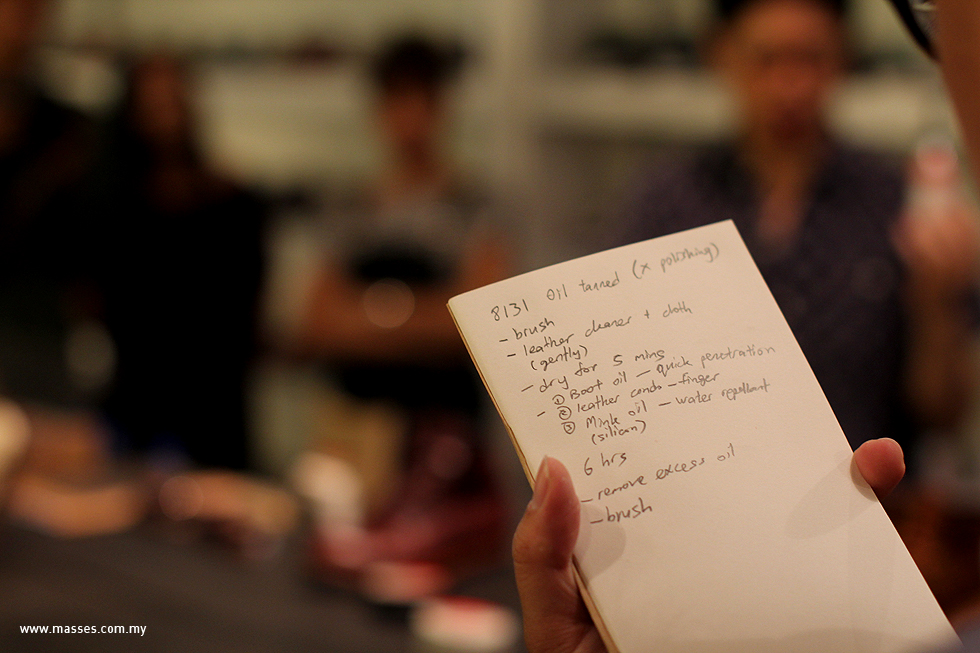 8131 Oil tanned (x polishing)
- brush
- leather cleaner + cloth
(gently)
- dry for 5 mins
- ① Boot oil - quick penetration
② leather conds - finger
③ Mink oil - water repellant
(silicon)
6 hrs
- remove excess oil
- brush
www.masses.com.my